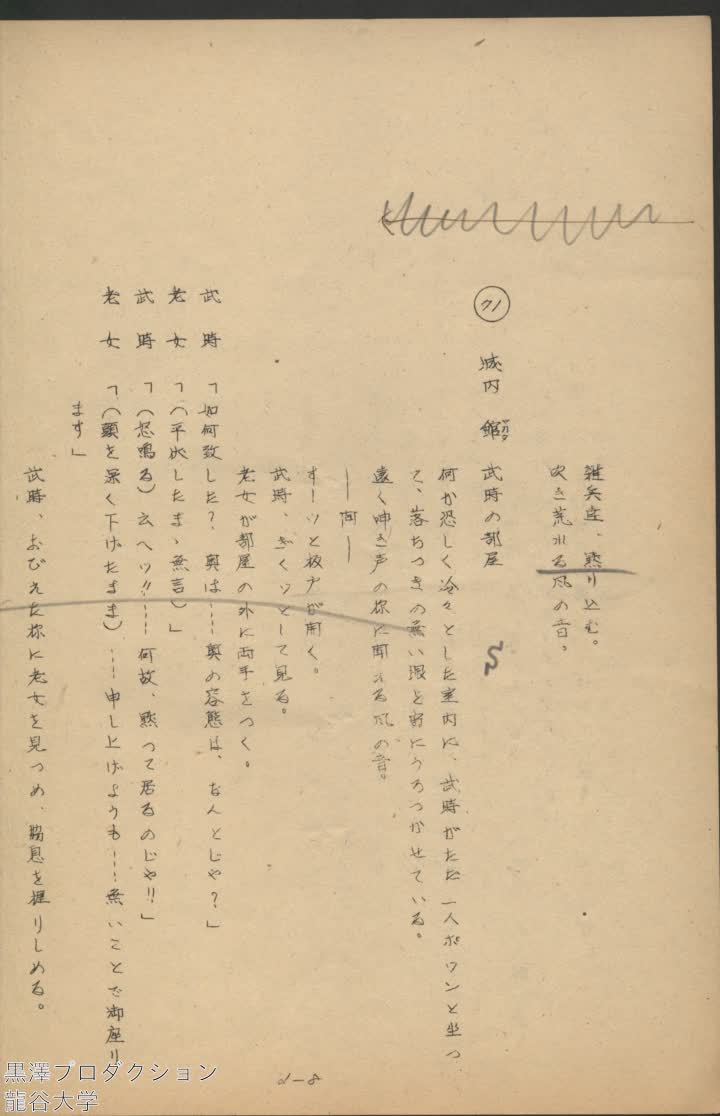 雑兵達、黙り込む。
吹き荒れる風の音。
71 城内 館 武時の部屋
何か恐しく冷々とした室内に、武時がただ一人ポツンと坐っ
て、落ちつきの無い眼を宙にうろつかせている。
遠く呻き声の様に聞える風の音。
――間――
すーッと板戸が開く。
武時、ぎくッとして見る。
老女が部屋の外に両手をつく。
武時「如何致した？、奥は……奥の容態は、なんとじゃ？」
老女「（平伏したまゝ無言）」
武時「（怒鳴る）云へッ!!……何故、黙って居るのじゃ!!」
老女「（頭を深く下げたまま）……申し上げようも……無いことで御座り
ます」
武時、おびえた様に老女を見つめ、脇息を握りしめる。
d-8
黒澤プロダクション
龍谷大学